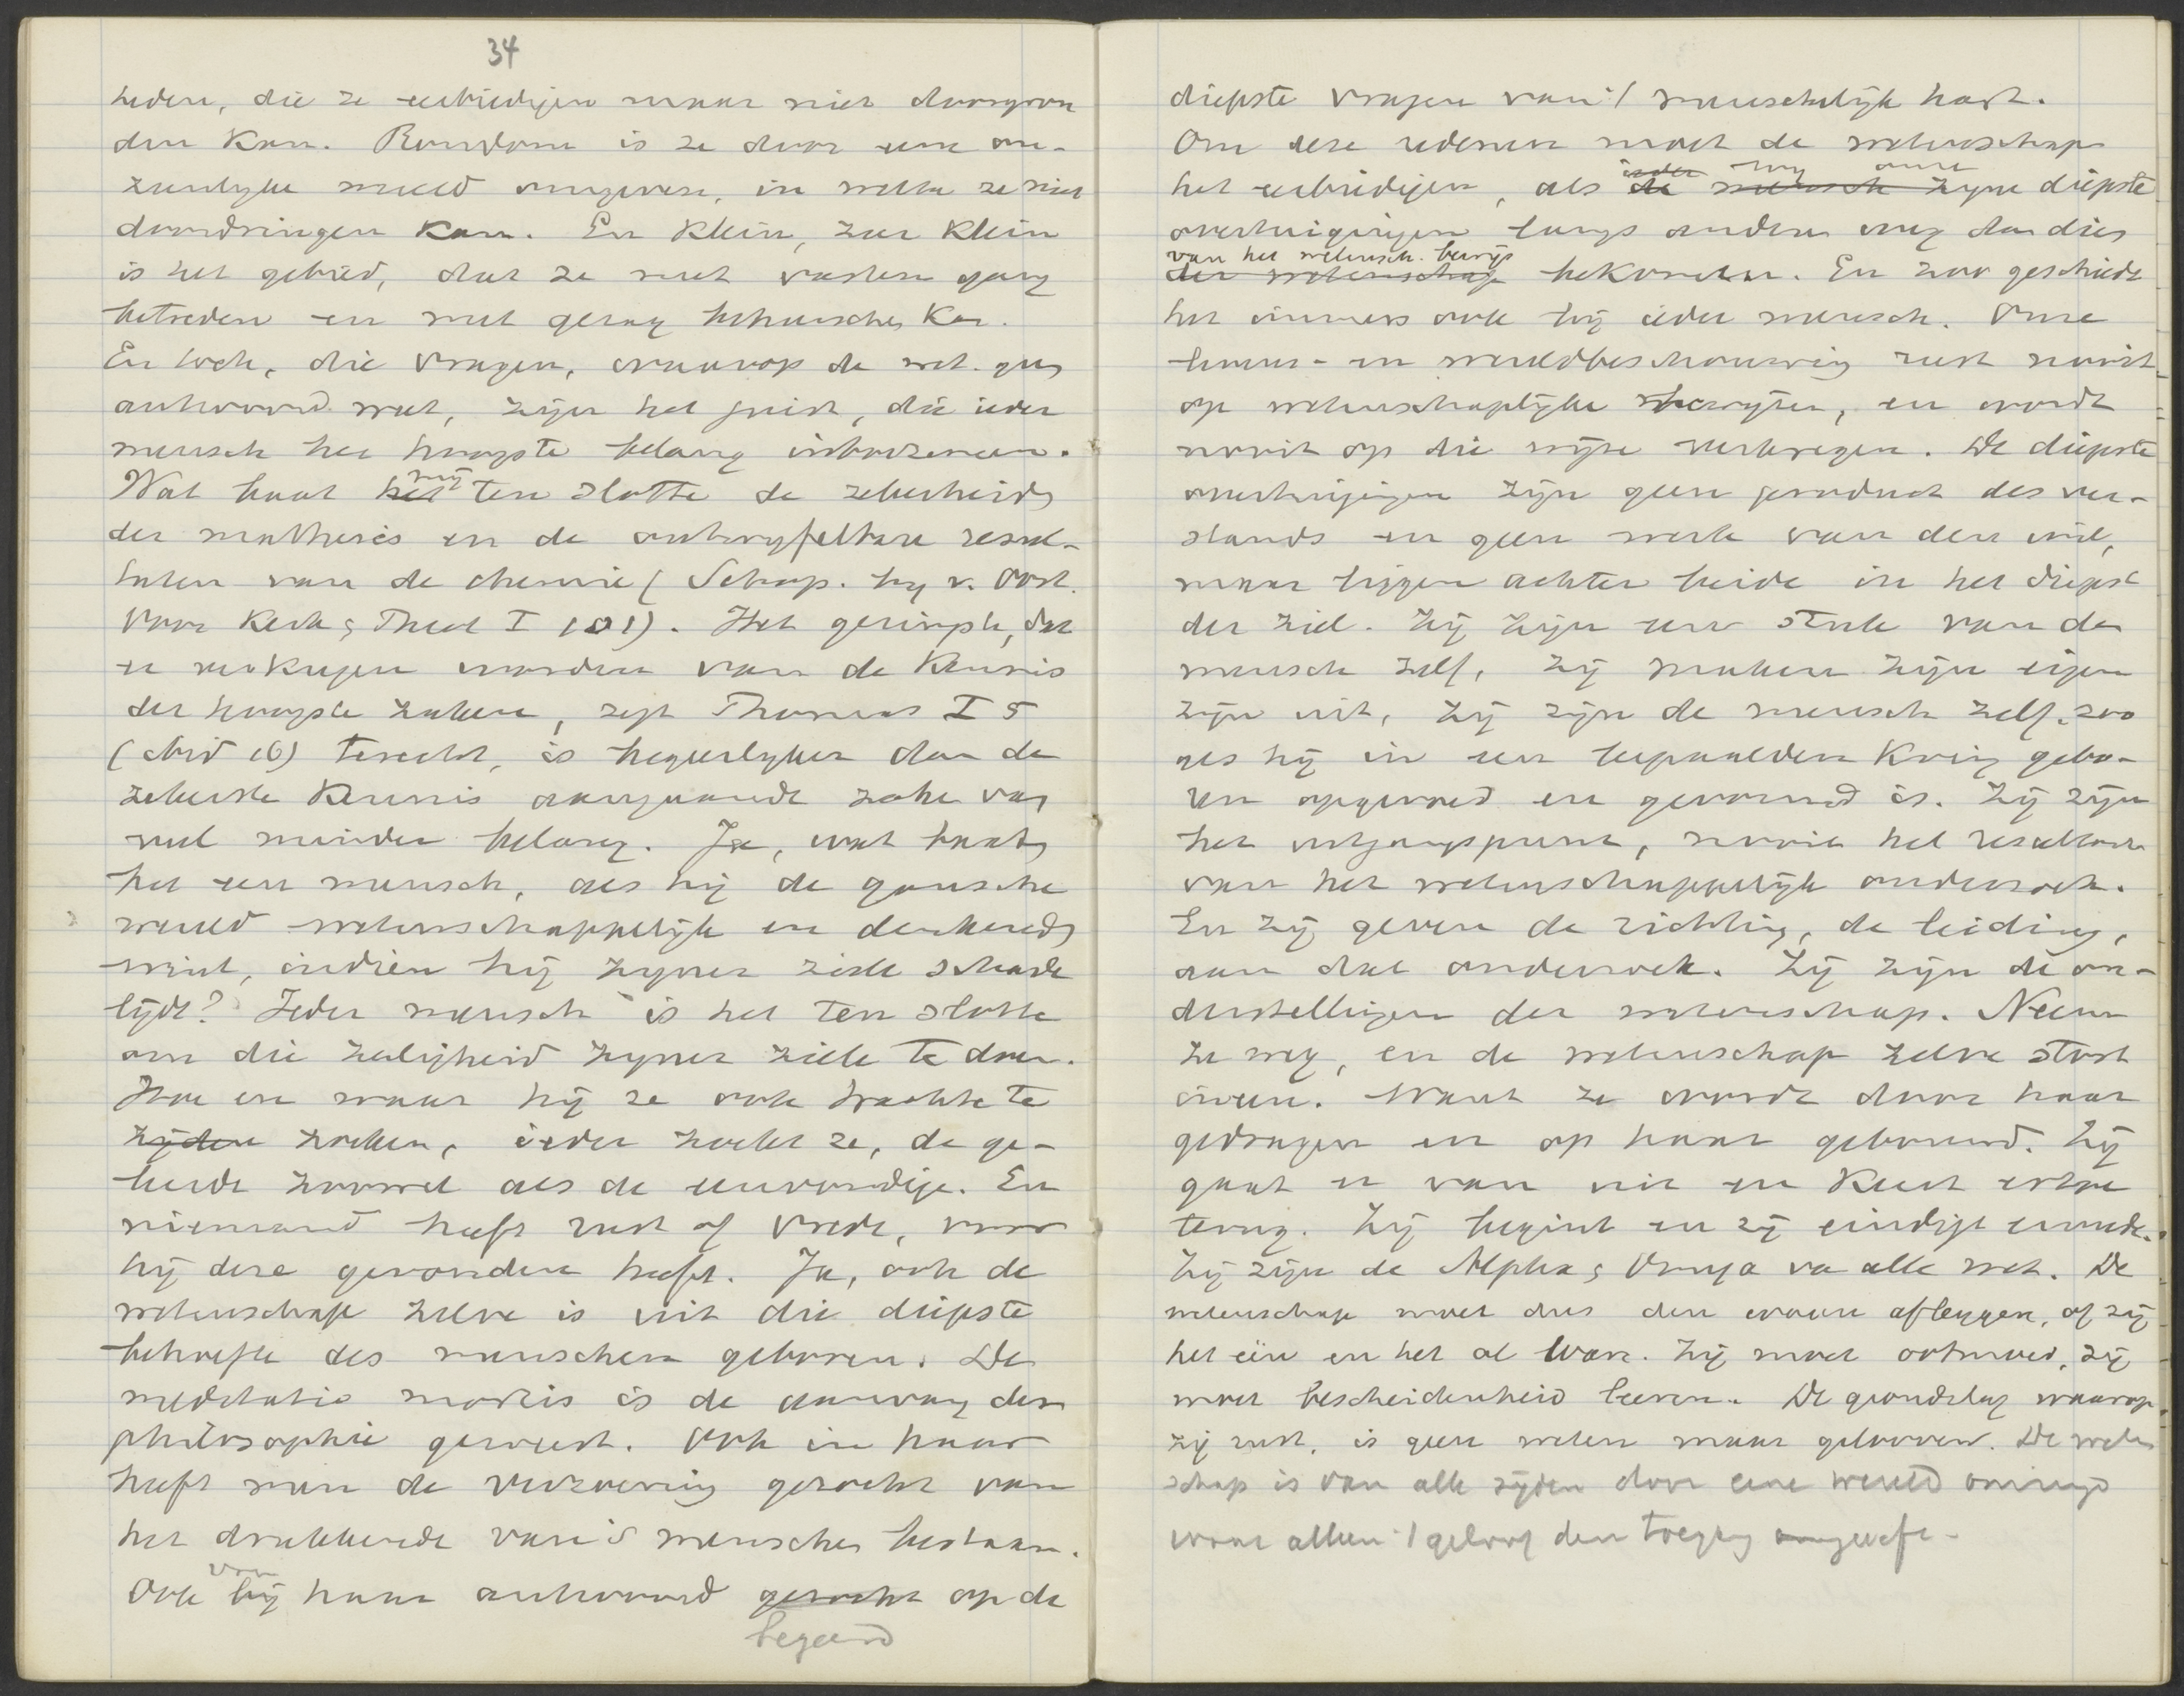 34
heden, die ze eerbiedigen maar niet doorgron
den kan. Rondom is ze door eene on-
zienlyke wereld omgeven, in welke ze niet
doordringen kan. En klein, zeer klein
is het gebied, dat ze met vasten gang
betreden en met gezag beheerschen kan.
En toch, die vragen, waarop de wet. geen
antwoord weet, zijn het juist, die ieder
mensch het hoogste belang inboezemen.
Wat baat het mij ten slotte de zekerheid
der mathesis en de ontwyfelbare resul-
taten van de chemie (Schap. by v. Oost.
Voor Kerk & Theol I 101). Het geringste, dat
er verkregen worden van de kennis
der hoogste zaken, zegt Thomas I 5
(ibid 16) terecht, is begeerlyker dan de
zekerste kennis aangaande zaken van
veel minder belang. Ja, wat baat
het een mensch, als hij de gansche
wereld wetenschappelijk en denkend
wint, indien hij zyner ziele schade
lijdt? Ieder mensch is het ten slotte
om die zaligheid zyner ziele te doen.
Hoe en waar hij ze ook trachtte te
zijden zoeken, ieder zoekt ze, de ge-
leerde zoowel als de eenvoudige. En
niemand heeft rust of vrede, voor
hij deze gevonden heeft. Ja, ook de
wetenschap zelve is uit die diepste
behoefte des menschen geboren. De
meditatio mortis is de aanvang der
philosophie geweest. Ook in haar
heeft men de verzoening gezocht van
het drukkende van 's menschen bestaan.
Ook bij van haar antwoord gezocht op de
begeerd
diepste vragen van 't menschelijk hart.
Om deze redenen moet de wetenschap
ieder wij onze
het eerbiedigen, als de mensch zyne diepste
overtuigingen langs anderen weg dan dien
van het wetensch. bewijs
der wetenschap bekomen. En zoo geschiedt
het immers ook bij ieder mensch. Onze
levens- en wereldbeschouwing rust nooit
op wetenschaplijke bewijzen, en wordt
nooit op die wijze verkregen. De diepste
overtuigingen zijn geen product des ver-
stands en geen werk van den wil,
maar liggen achter beide in het diepst
der ziel. Zij zijn een stuk van den
mensch zelf, zij maken zijn eigen
zijn uit, zij zijn de mensch zelf, zoo
als hij in een bepaalden kring gebo-
ren opgevoed en gevormd is. Zij zijn
het uitgangspunt, nooit het resultaat
van het wetenschappelijk onderzoek.
En zij geven de richting, de leiding,
aan dat onderzoek. Zij zijn de on-
derstellingen der wetenschap. Neem
ze weg, en de wetenschap zelve stort
ineen. Want ze wordt door haar
gedragen en op haar gebouwd. Zij
gaat er van uit en keert ertoe
terug. Zij begint en zij eindigt ermede.
Zij zijn de Alpha & Omega va alle wet. De
wetenschap moet dus den waan afleggen, of zij
het één en het al ware. Zij moet ootmoed, zij
moet bescheidenheid leeren. De grondslag waarop
zij rust, is geen weten maar gelooven. De weten
schap is van alle zijden door eene wereld omringd
waar alleen 't geloof den toegang geeft.